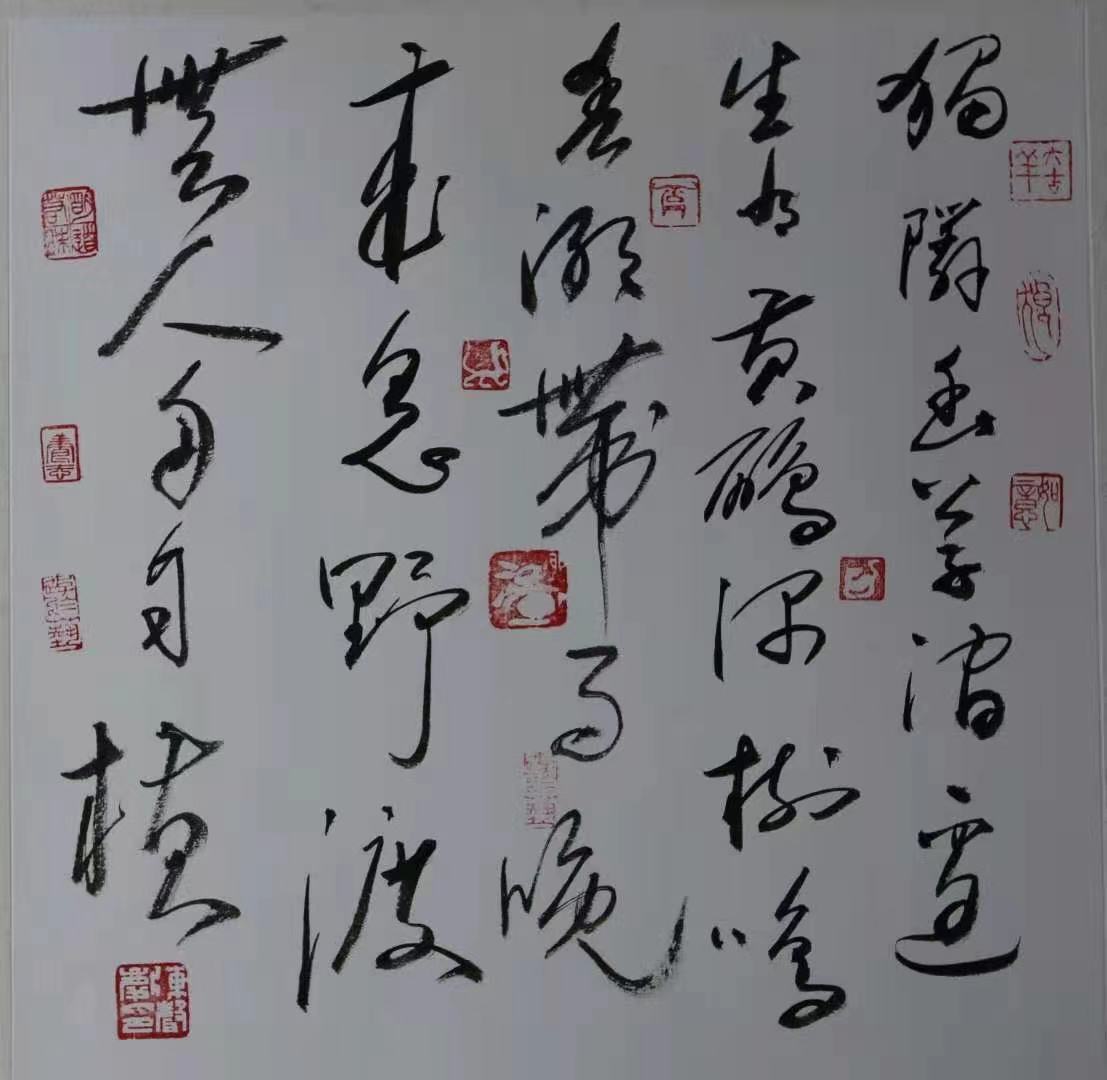 獨憐幽草澗邊
生上有黃鸝深樹鳴
春潮帶雨晚
來急野渡
無人舟自橫
大吉羊
如意